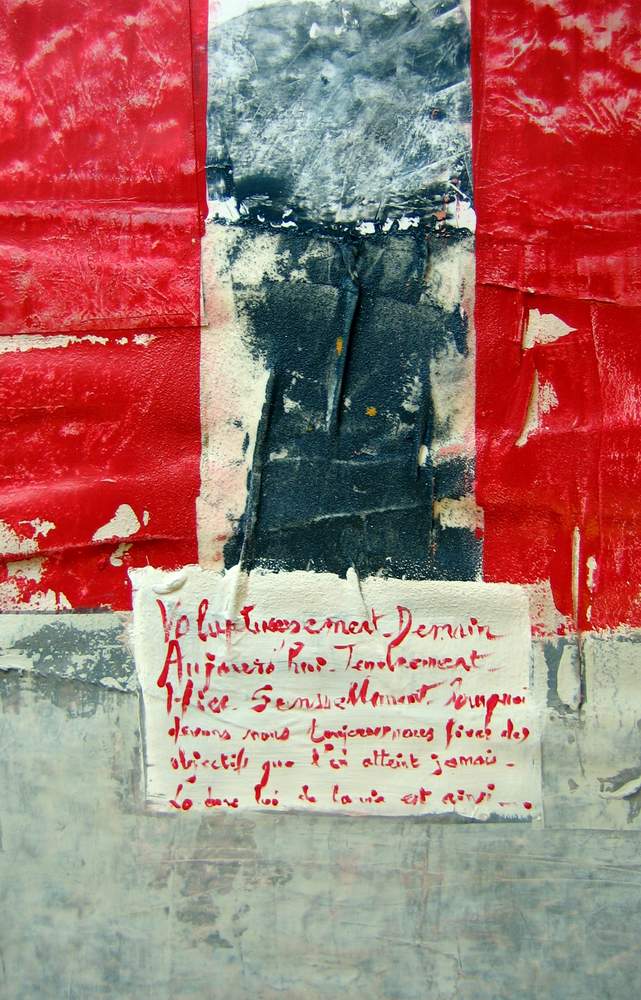 Voluptueusement. Demain
Aujourd'hui. Tendrement
Hier. Sensuellement. Pourquoi
devons nous toujours nous fixer des
objectifs que l'on atteint jamais.
La dure loi de la vie est ainsi....